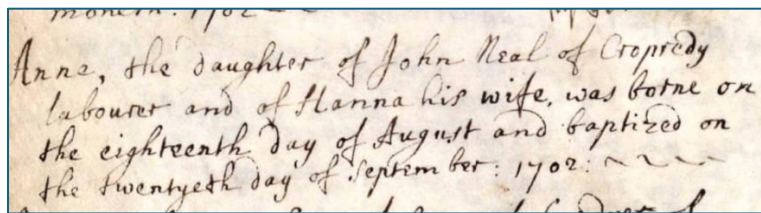 moneth: 1702
Anne, the daughter of John Neal of Cropredy
labourer and of Hanna his wife, was borne on
the eighteenth day of August and baptized on
the twentyeth day of September: 1702: